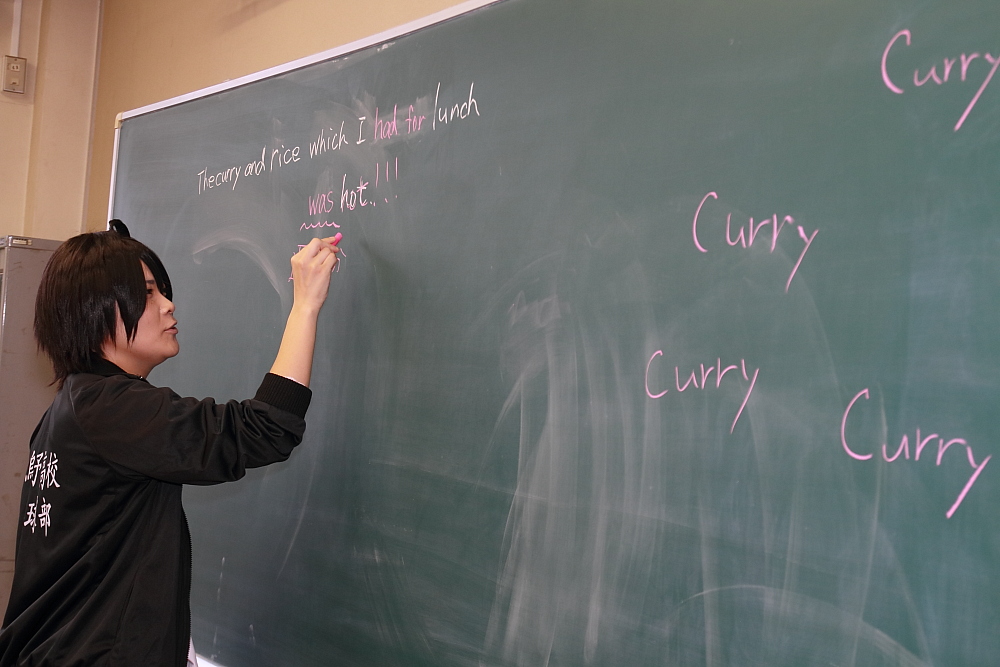 The curry and rice which I had for lunch
was hot!!!
Curry
Curry
Curry
Curry
烏野高校
球部